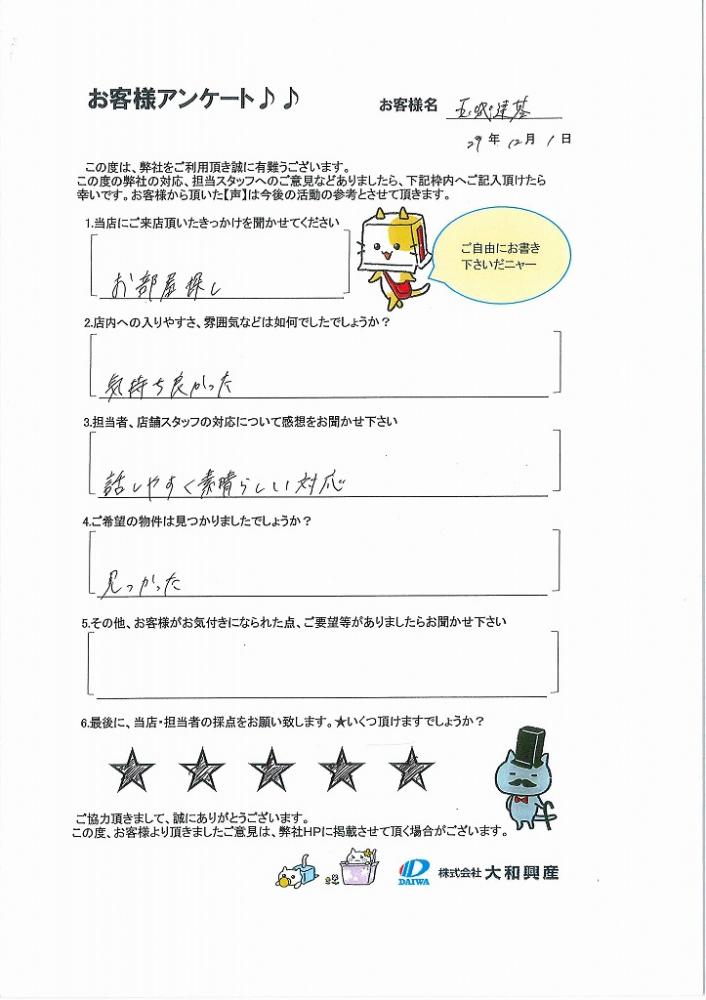 お客様アンケート♪♪
お客様名
29年12月1日
この度は、弊社をご利用頂き誠に有難うございます。
この度の弊社の対応、担当スタッフへのご意見などありましたら、下記枠内へご記入頂けたら
幸いです。お客様から頂いた【声】は今後の活動の参考とさせて頂きます。
1.当店にご来店頂いたきっかけを聞かせてください
お部屋探し
ご自由にお書き
下さいだニャー
2.店内への入りやすさ、雰囲気などは如何でしたでしょうか?
気持ち良かった
3.担当者、店舗スタッフの対応について感想をお聞かせ下さい
話しやすく素晴らしい対応
4.ご希望の物件は見つかりましたでしょうか?
見つかった
5.その他、お客様がお気付きになられた点、ご要望等がありましたらお聞かせ下さい
6.最後に、当店・担当者の採点をお願い致します。★いくつ頂けますでしょうか?
★ ★ ★ ★ ★
ご協力頂きまして、誠にありがとうございます。
この度、お客様より頂きましたご意見は、弊社HPに掲載させて頂く場合がございます。
DAIWA 株式会社 大和興産